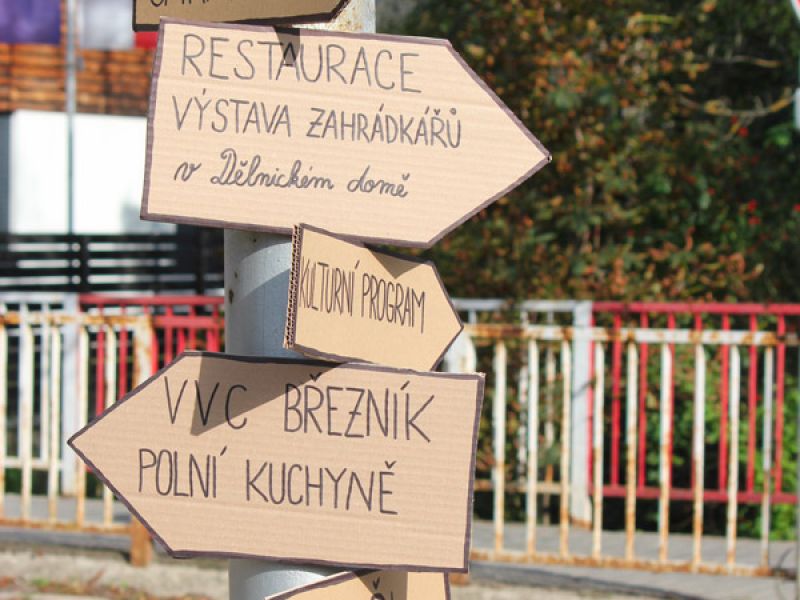 RESTAURACE
VÝSTAVA ZAHRÁDKÁŘŮ
v Dělnickém domě
KULTURNÍ PROGRAM
VVC BŘEZNÍK
POLNÍ KUCHYNĚ